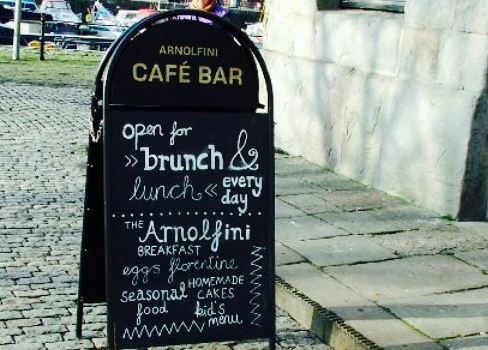 ARNOLFINI
CAFÉ BAR
open for
»brunch &
lunch« every
day
THE Arnolfini
BREAKFAST
eggs florentine
seasonal HOMEMADE
food CAKES
kid's
menu